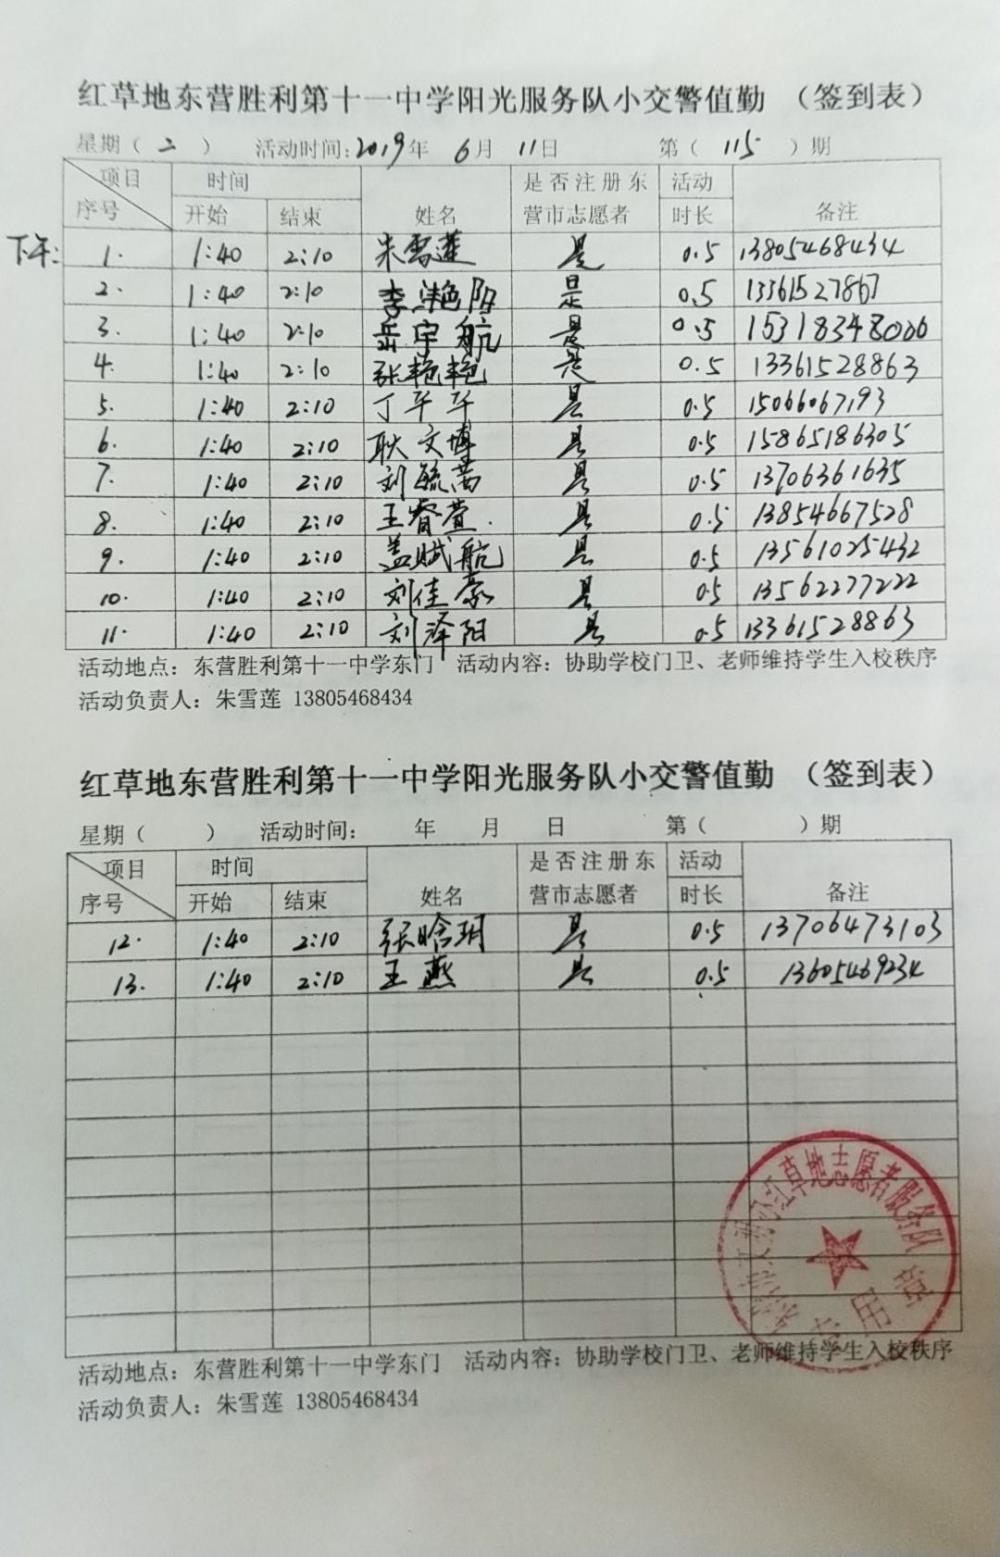 红草地东营胜利第十一中学阳光服务队小交警值勤 （签到表）
星期（ 二 ） 活动时间：2019年 6月 11日 第（ 115 ）期
项目 时间 是否注册东 活动
序号 开始 结束 姓名 营市志愿者 时长 备注
下午： 1. 1:40 2:10 朱雪莲 是 0.5 13805468434
2. 1:40 2:10 李艳阳 是 0.5 13361527867
3. 1:40 2:10 岳宇航 是 0.5 15318348006
4. 1:40 2:10 张艳艳 是 0.5 13361528863
5. 1:40 2:10 丁平平 是 0.5 15066067193
6. 1:40 2:10 耿文博 是 0.5 15865186305
7. 1:40 2:10 刘毓茜 是 0.5 13706361635
8. 1:40 2:10 王睿萱. 是 0.5 13854667528
9. 1:40 2:10 盖赋航 是 0.5 13561025432
10. 1:40 2:10 刘佳豪 是 0.5 13562277222
11. 1:40 2:10 刘泽阳 是 0.5 13361528863
活动地点：东营胜利第十一中学东门 活动内容：协助学校门卫、老师维持学生入校秩序
活动负责人：朱雪莲 13805468434
红草地东营胜利第十一中学阳光服务队小交警值勤 （签到表）
星期（ ） 活动时间： 年 月 日 第（ ）期
项目 时间 是否注册东 活动
序号 开始 结束 姓名 营市志愿者 时长 备注
12. 1:40 2:10 张晗玥 是 0.5 13706473103
13. 1:40 2:10 王燕 是 0.5 13605469234
红草地志愿者服务队
专用章
活动地点：东营胜利第十一中学东门 活动内容：协助学校门卫、老师维持学生入校秩序
活动负责人：朱雪莲 13805468434